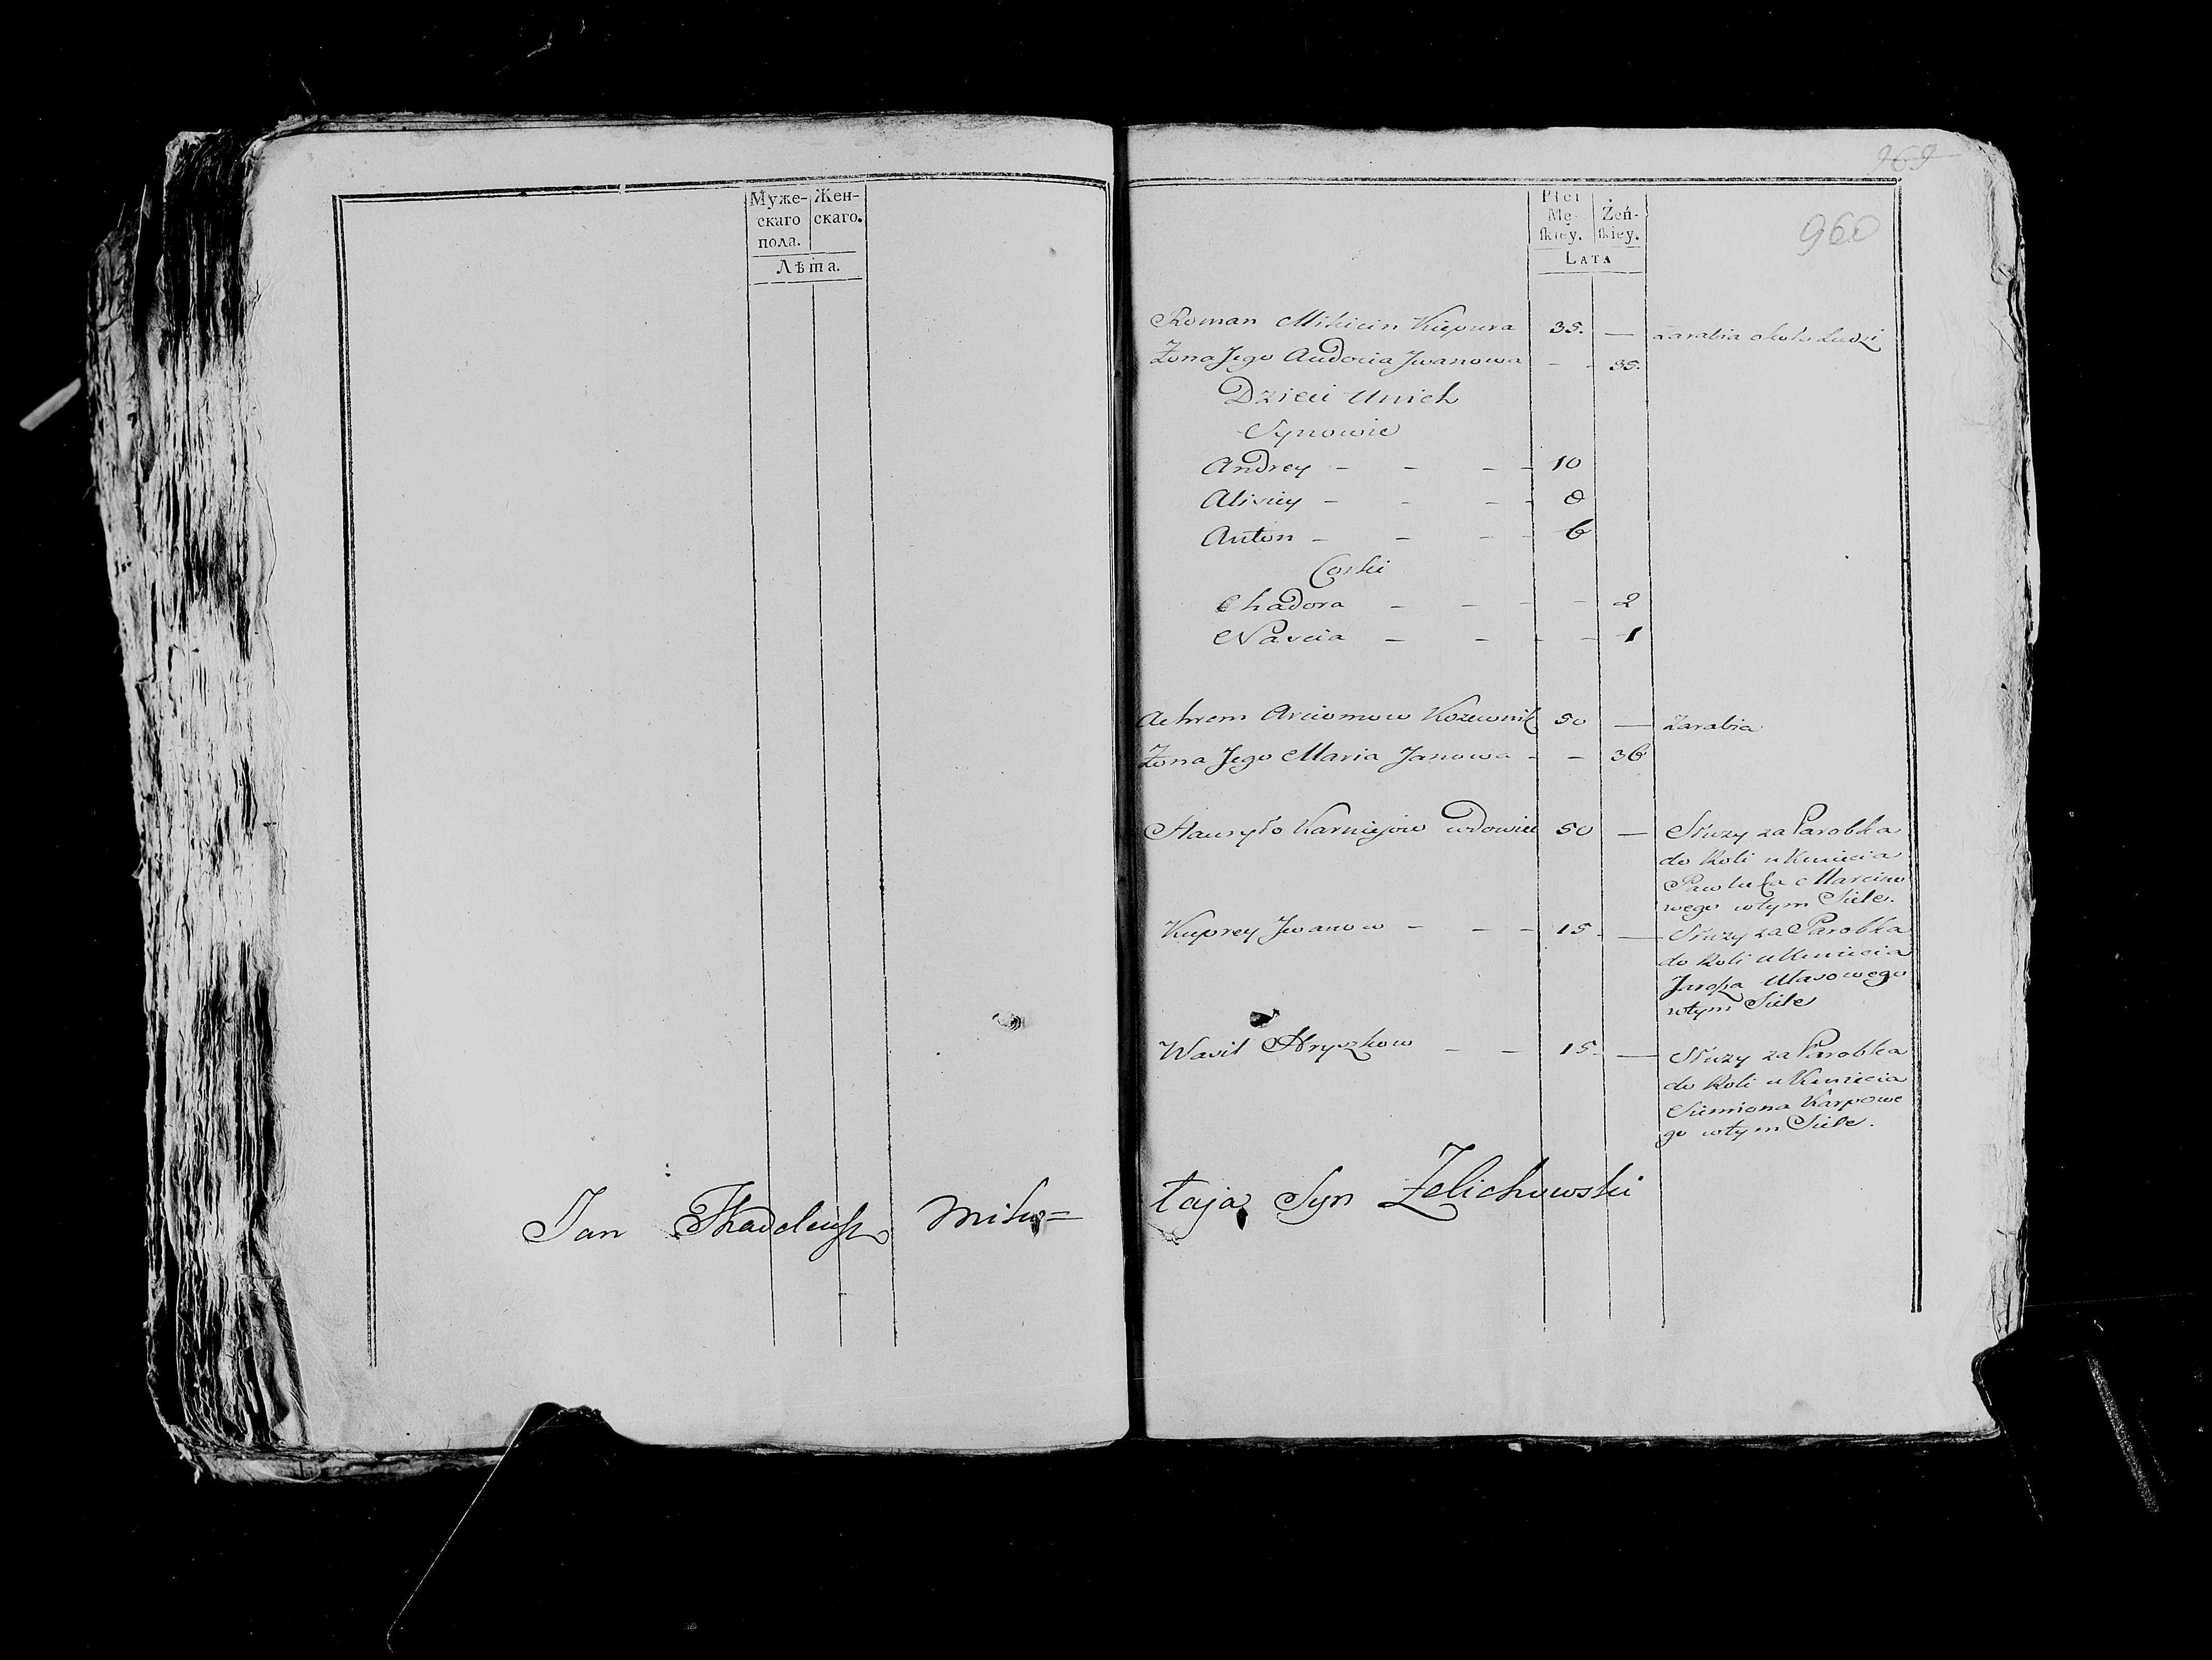 Муже-
скаго
пола.
Жен-
скаго.
Лѣта.
969
960
Płci
Mę-
ſkiey.
Żeń-
ſkiey.
LATA
Roman Mikicin Kiepura 35. — Zarabia około Ludzi
Żona Jego Audocia Jwanowa — - 35.
Dzieci Unich
Synowie
Andrey - - - - 10
Alisiey - - - - 8
Anton - - - - 6
Corki
Chadora - - - - 2
Nascia - - - - 1
Achrem Arciomow Kozewnik 50 — Zarabia
Żona Jego Maria Janowa - - 36
Hauryło Karniejow wdowiec 50 — Służy za Parobka
do Roli u Kmiecia
Pawluka Marcino
wego wtym Siele.
Kuprey Jwanow - - - 15 - — Służy za Parobka
do Roli u Kmiecia
Jarosza Ułasowego
wtym Siele
Wasil Hryszkow - - 15 - — Służy za Parobka
do Roli u Kmiecia
Siemiona Karpowe
go wtym Siele.
Jan Thadeusz Miko=
łaja Syn Zelichowski